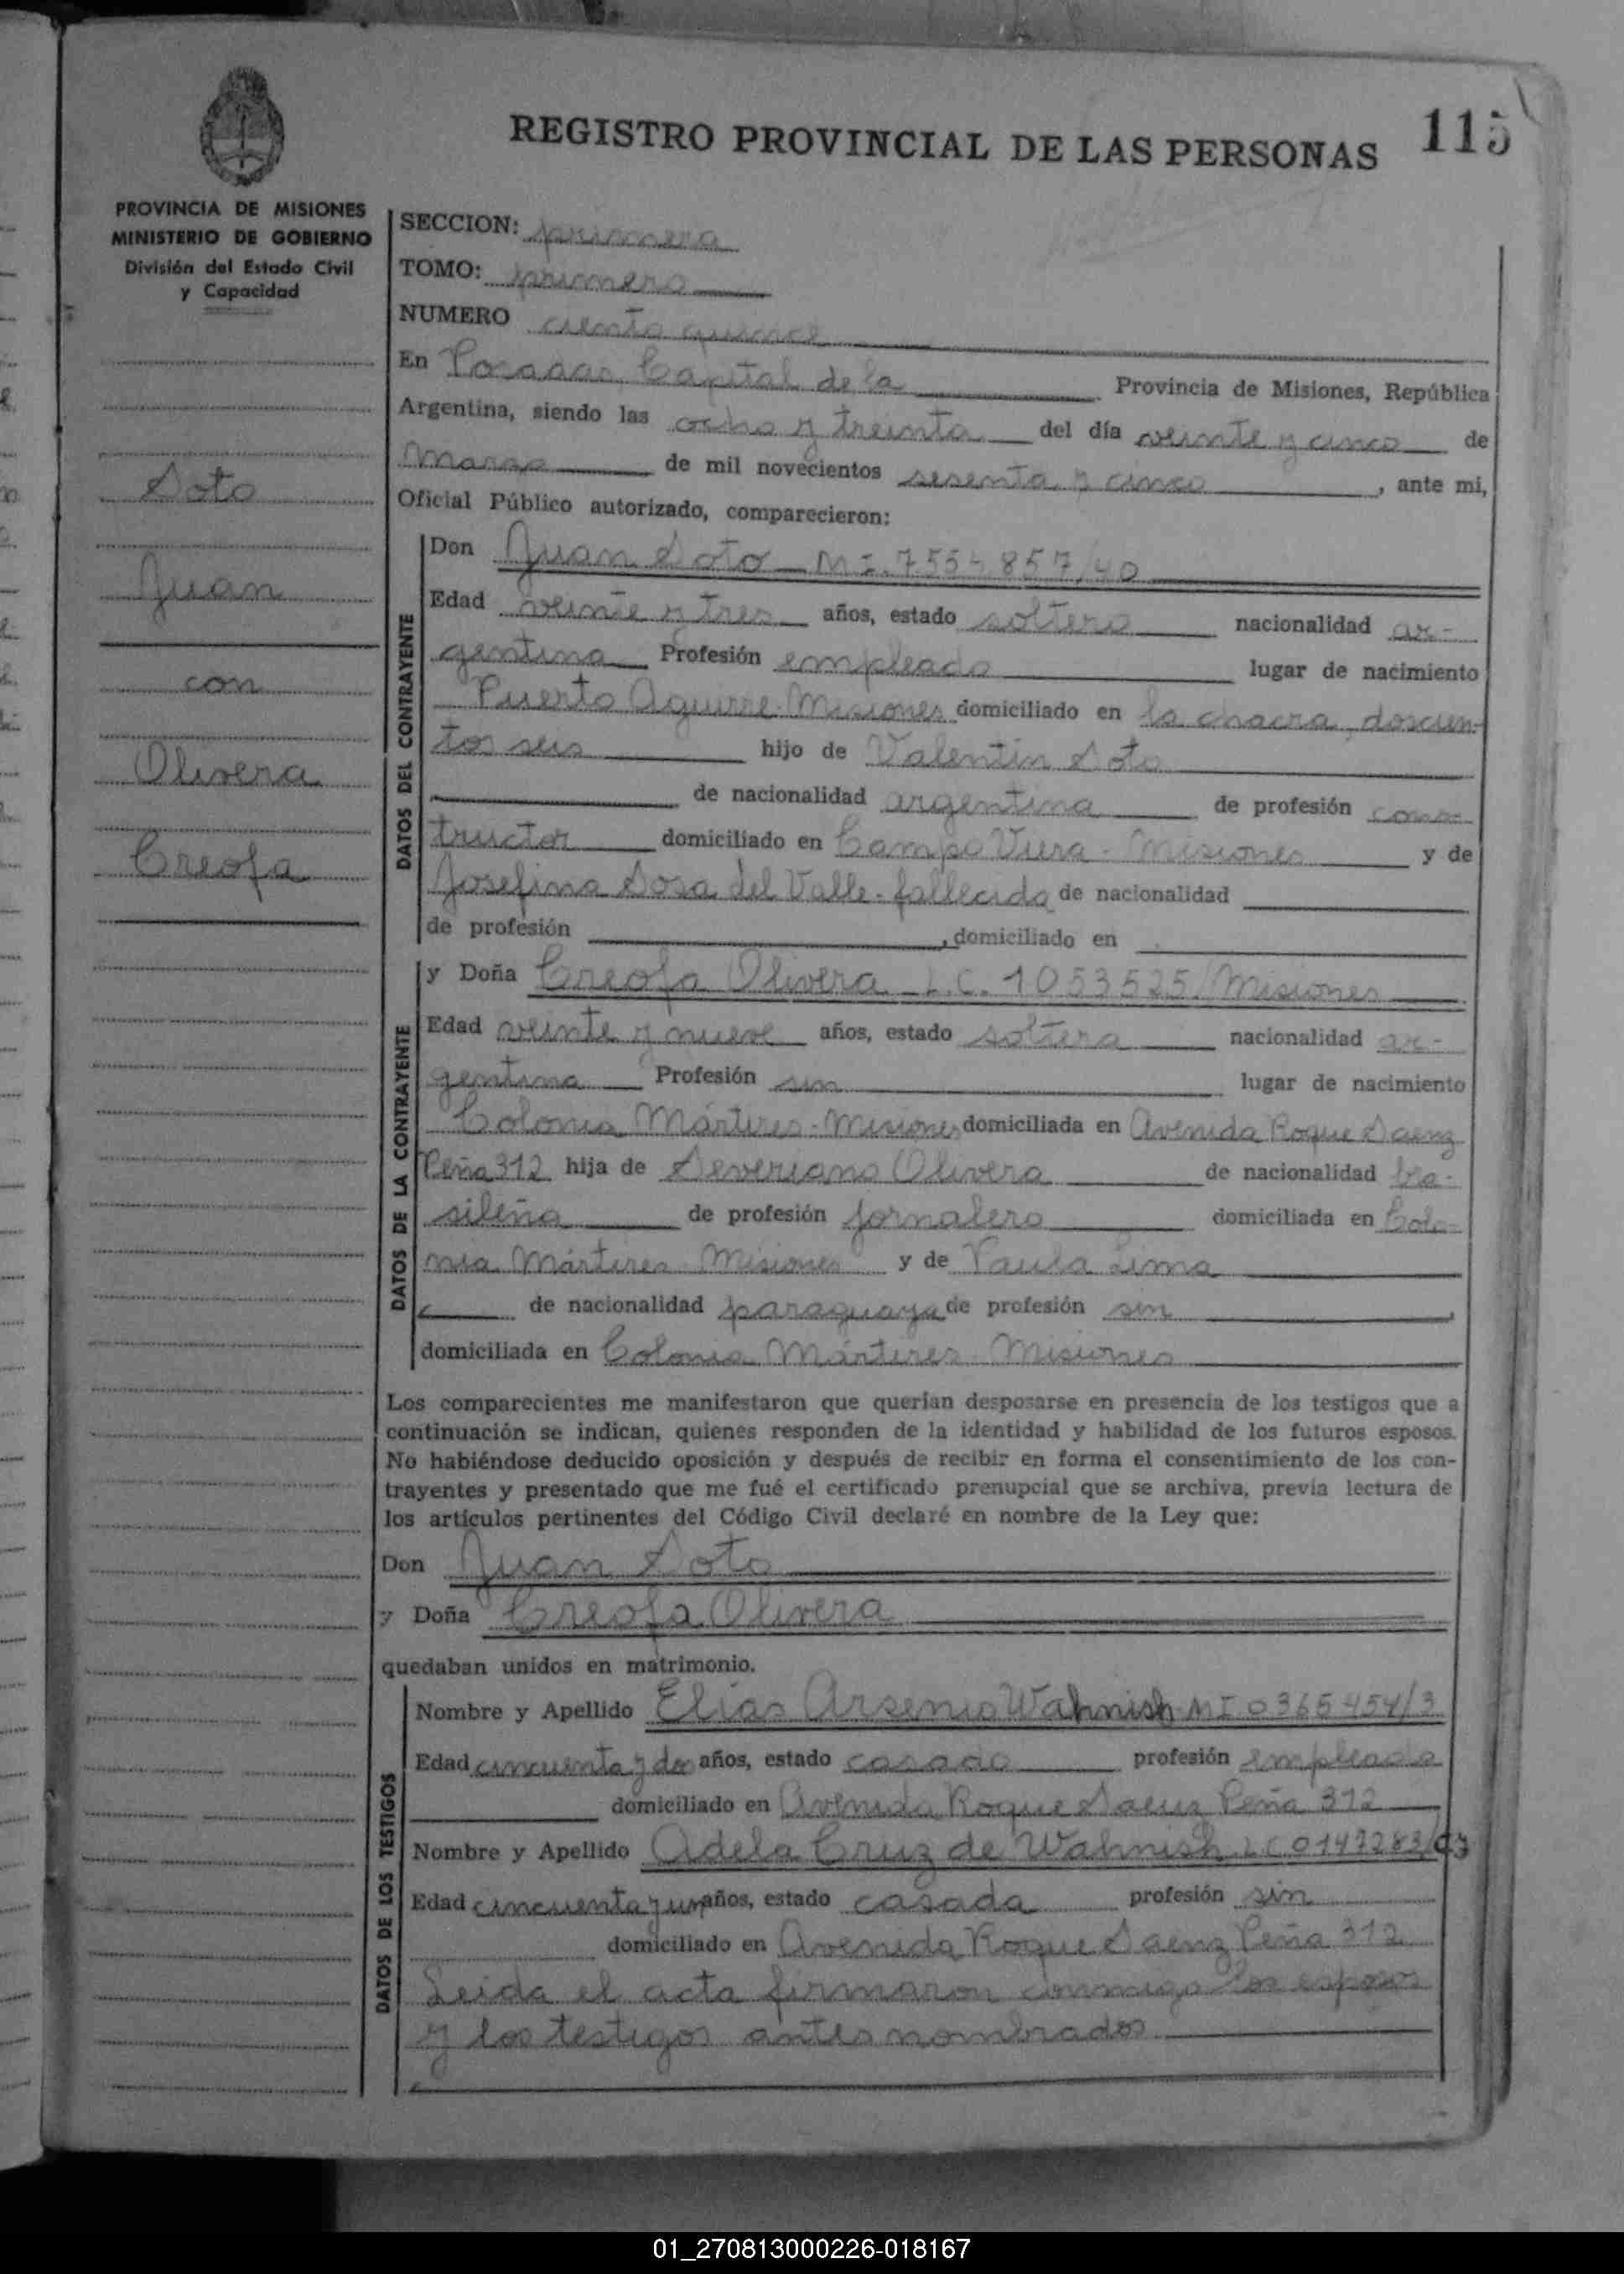 REGISTRO PROVINCIAL DE LAS PERSONAS 115
PROVINCIA DE MISIONES
MINISTERIO DE GOBIERNO
División del Estado Civil
y Capacidad
Soto
Juan
con
Olivera
Creofa
SECCION: primera
TOMO: primero
NUMERO ciento quince
En Posadas Capital de la Provincia de Misiones, República
Argentina, siendo las ocho y treinta del día veinte y cinco de
Marzo de mil novecientos sesenta y cinco, ante mi,
Oficial Público autorizado, comparecieron:
DATOS DEL CONTRAYENTE
Don Juan Soto - M.I. 7554857/40
Edad veinte y tres años, estado soltero nacionalidad ar-
gentina Profesión empleado lugar de nacimiento
Puerto Aguirre-Misiones domiciliado en la chacra doscien-
tos seis hijo de Valentin Soto
de nacionalidad argentina de profesión cons-
tructor domiciliado en Campo Viera - Misiones y de
Josefina Sosa del Valle - fallecida de nacionalidad
de profesión , domiciliado en
DATOS DE LA CONTRAYENTE
y Doña Creofa Olivera - L.C. 1053525/Misiones
Edad veinte y nueve años, estado soltera nacionalidad ar-
gentina Profesión sin lugar de nacimiento
Colonia Mártires-Misiones domiciliada en Avenida Roque Saenz
Peña 312 hija de Severiano Olivera de nacionalidad bra-
sileña de profesión jornalero domiciliada en Colo-
nia Mártires - Misiones y de Paula Lima
de nacionalidad paraguaya de profesión sin ,
domiciliada en Colonia Mártires - Misiones
Los comparecientes me manifestaron que querían desposarse en presencia de los testigos que a
continuación se indican, quienes responden de la identidad y habilidad de los futuros esposos.
No habiéndose deducido oposición y después de recibir en forma el consentimiento de los con-
trayentes y presentado que me fué el certificado prenupcial que se archiva, previa lectura de
los artículos pertinentes del Código Civil declaré en nombre de la Ley que:
Don Juan Soto
y Doña Creofa Olivera
quedaban unidos en matrimonio.
DATOS DE LOS TESTIGOS
Nombre y Apellido Elías Arsenio Wahnish MI 0365454/3
Edad cincuenta y dos años, estado casado profesión empleado
domiciliado en Avenida Roque Saenz Peña 312
Nombre y Apellido Adela Cruz de Wahnish L.C. 0147283/93
Edad cincuenta y un años, estado casada profesión sin
domiciliado en Avenida Roque Saenz Peña 312
Leida el acta firmaron conmigo los esposos
y los testigos antes nombrados
01_270813000226-018167